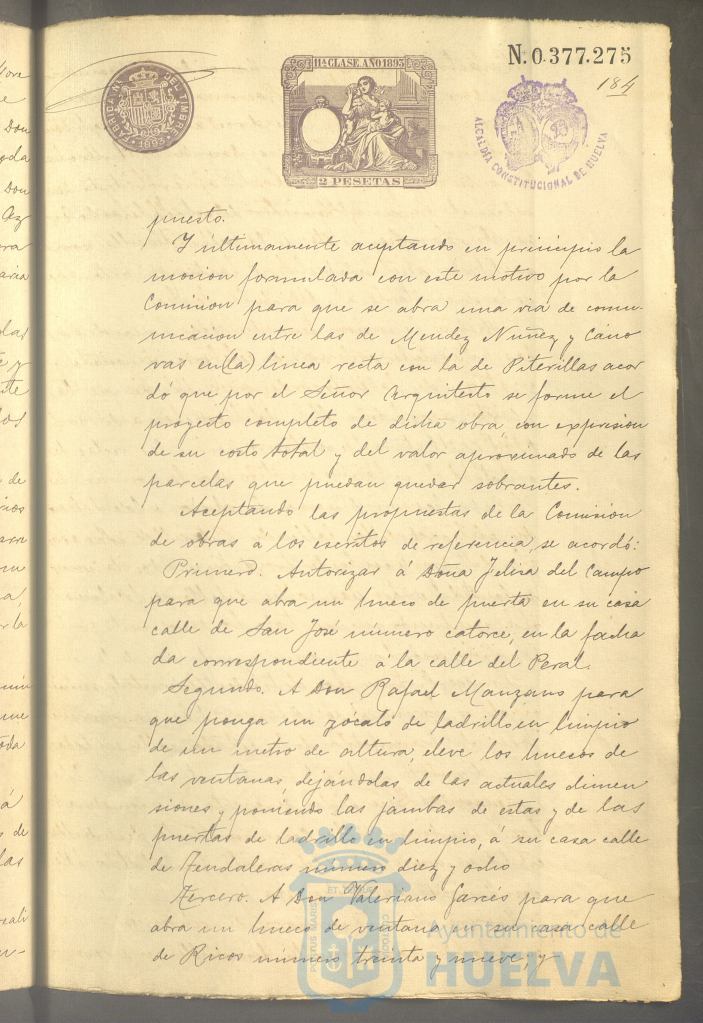 N. 0.377.275
184
11ª CLASE. AÑO 1893
2 PESETAS
FABRICA NAL DEL TIMBRE
1893
ALCALDÍA CONSTITUCIONAL DE HUELVA
puesto.
Y últimamente aceptando en principio la
mocion formulada con este motivo por la
Comision para que se abra una via de comu-
nicacion entre las de Mendez Nuñez y Cáno
vas en (la) linea recta con la de Piterillas acor
dó que por el Señor Arquitecto se forme el
proyecto completo de dicha obra, con expresion
de su costo total y del valor aproximado de las
parcelas que puedan quedar sobrantes.
Aceptando las propuestas de la Comision
de obras á los escritos de referencia, se acordó:
Primero. Autorizar á Doña Felisa del Campo
para que abra un hueco de puerta en su casa
calle de San José número catorce, en la facha
da correspondiente á la calle del Peral.
Segundo. A Don Rafael Manzano para
que ponga un zócalo de ladrillo en limpio
de un metro de altura, eleve los huecos de
las ventanas, dejándolas de las actuales dimen
siones y poniendo las jambas de estas y de las
puertas de ladrillo en limpio, á su casa calle
de Tendaleras número diez y ocho
Tercero. A Don Valeriano Garcés para que
abra un hueco de ventana en su casa calle
de Ricos número treinta y nueve, y
PORTUS MARIS ET TERRAE CUSTODIA
Ayuntamiento de
HUELVA